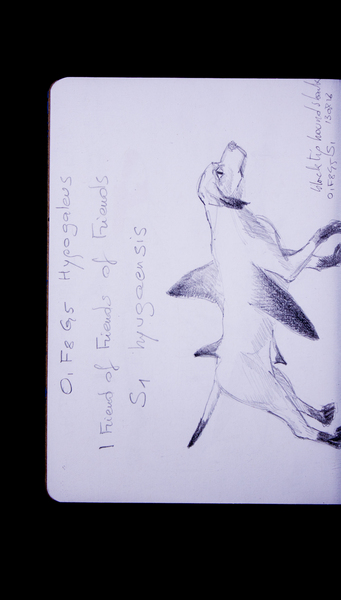 O1 F8 G5 Hypogaleus
1 Friend of Friends of Friends
S1 hyugaensis
blacktip houndshark
O1F8G5S1 130816